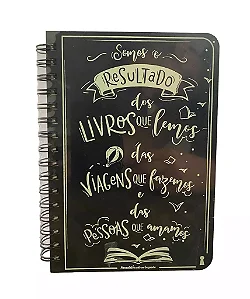 Somos o
RESULTADO
dos
LIVROS QUE lemos
das
VIAGENS QUE fazemos
e das
PESSOAS QUE amamos